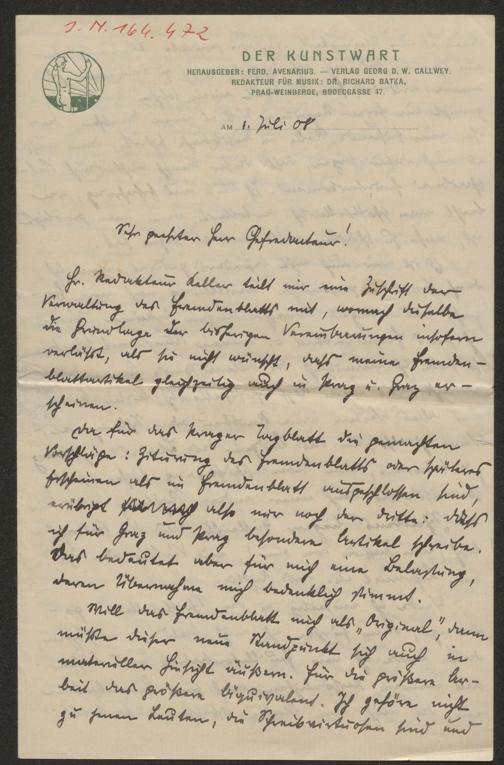 J. N. 164.472
DER KUNSTWART
HERAUSGEBER: FERD. AVENARIUS. — VERLAG GEORG D. W. CALLWEY.
REDAKTEUR FÜR MUSIK: DR. RICHARD BATKA,
PRAG-WEINBERGE, BODECGASSE 47.
AM 1. Juli 08
Sehr geehrter Herr Chefredacteur!
Hr. Redakteur Keller teilt mir eine Zuschrift der
Verwaltung des Fremdenblatts mit, wonach dieselbe
die Grundlage der bisherigen Vereinbarungen insofern
verläßt, als sie nicht wünscht, dass meine Fremden-
blattartikel gleichzeitig auch in Prag u. Graz er-
scheinen.
Da für das Prager Tagblatt die gemachten
Vorschläge: Zitirung des Fremdenblatts oder späteres
Erscheinen als im Fremdenblatt ausgeschlossen sind,
erübrigt also nur noch der dritte: dass
ich für Graz und Prag besondere Artikel schreibe.
Das bedeutet aber für mich eine Belastung,
deren Übernahme mich bedenklich stimmt.
Will das Fremdenblatt mich als „Original", dann
müßte dieser neue Standpunkt sich auch in
materieller Hinsicht äußern. Für die größere Ar-
beit das größere Äquivalent. Ich gehöre nicht
zu jenen Leuten, die Schreibvirtuosen sind und